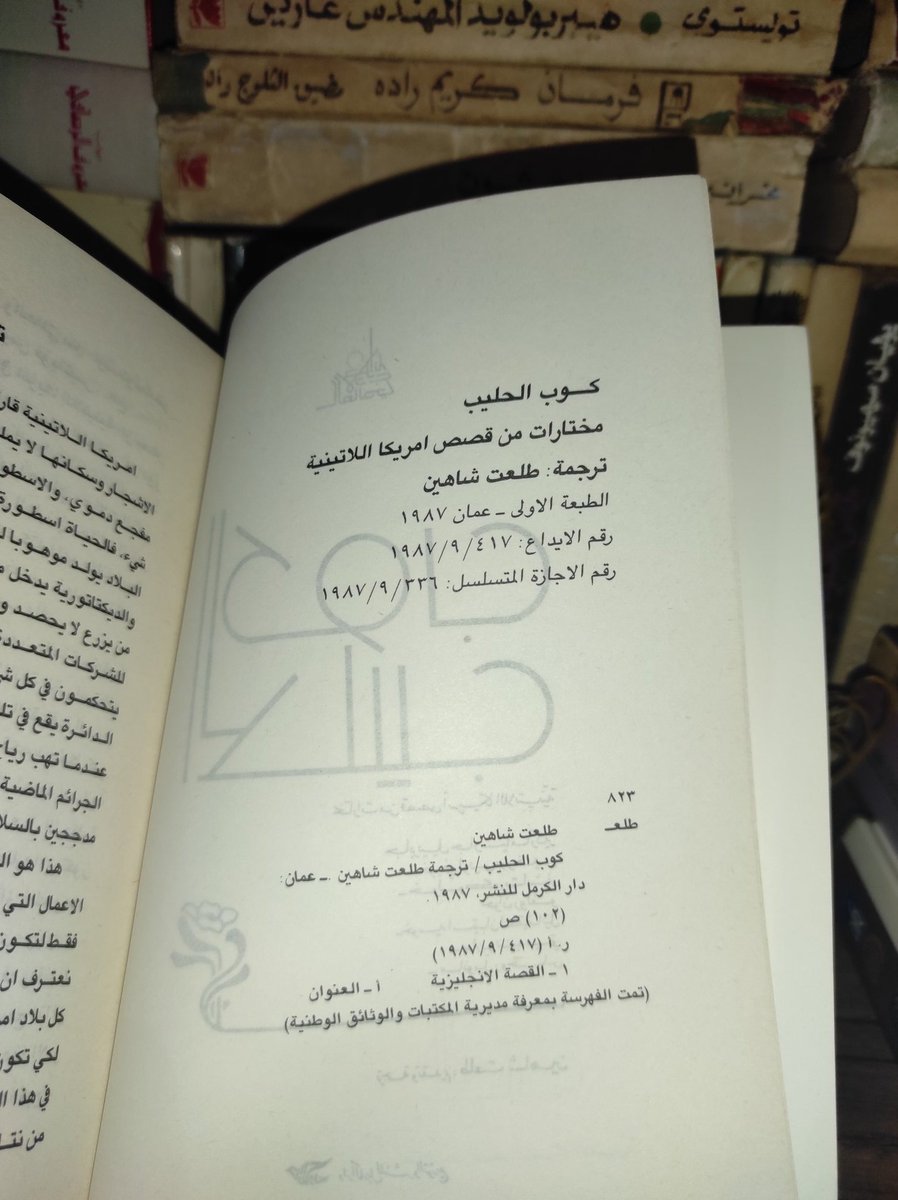 تولستوي ● هيبربولويد المهندس غارين
فرمان كريم زاده مضيق الثلوج
كوب الحليب
مختارات من قصص امريكا اللاتينية
ترجمة: طلعت شاهين
الطبعة الاولى ـ عمان ١٩٨٧
رقم الايداع: ٤١٧/٩/١٩٨٧
رقم الاجازة المتسلسل: ٣٣٦/٩/١٩٨٧
٨٢٣
طلعـ طلعت شاهين
كوب الحليب/ ترجمة طلعت شاهين .ـ عمان:
دار الكرمل للنشر، ١٩٨٧.
(١٠٢) ص
ر. أ (٤١٧/٩/١٩٨٧)
١ ـ القصة الانجليزية أ ـ العنوان
(تمت الفهرسة بمعرفة مديرية المكتبات والوثائق الوطنية)
امريكا اللاتينية
الاشجار وسكانها لا
مفجع دموي، والاسطو
شيء، فالحياة اسطورة
البلاد يولد موهوبا
والديكتاتورية يدخل
من يزرع لا يحصد و
للشركات المتعددة
يتحكمون في كل
الدائرة يقع في
عندما تهب
الجرائم الماضية
مدججين
هذا هو
الاعمال التي
فقط لتكون
نعترف ان
كل بلاد
لكي تكون
في هذا
من